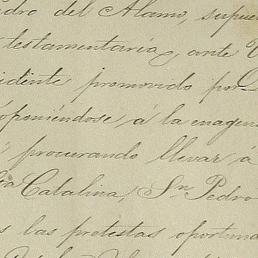 dro del Alamo, supue
testamentaría, ante
idente promovido por
oponiéndose á la enagena
procurando llevar á
Catalina, Sn Pedro
s las protestas oportuna